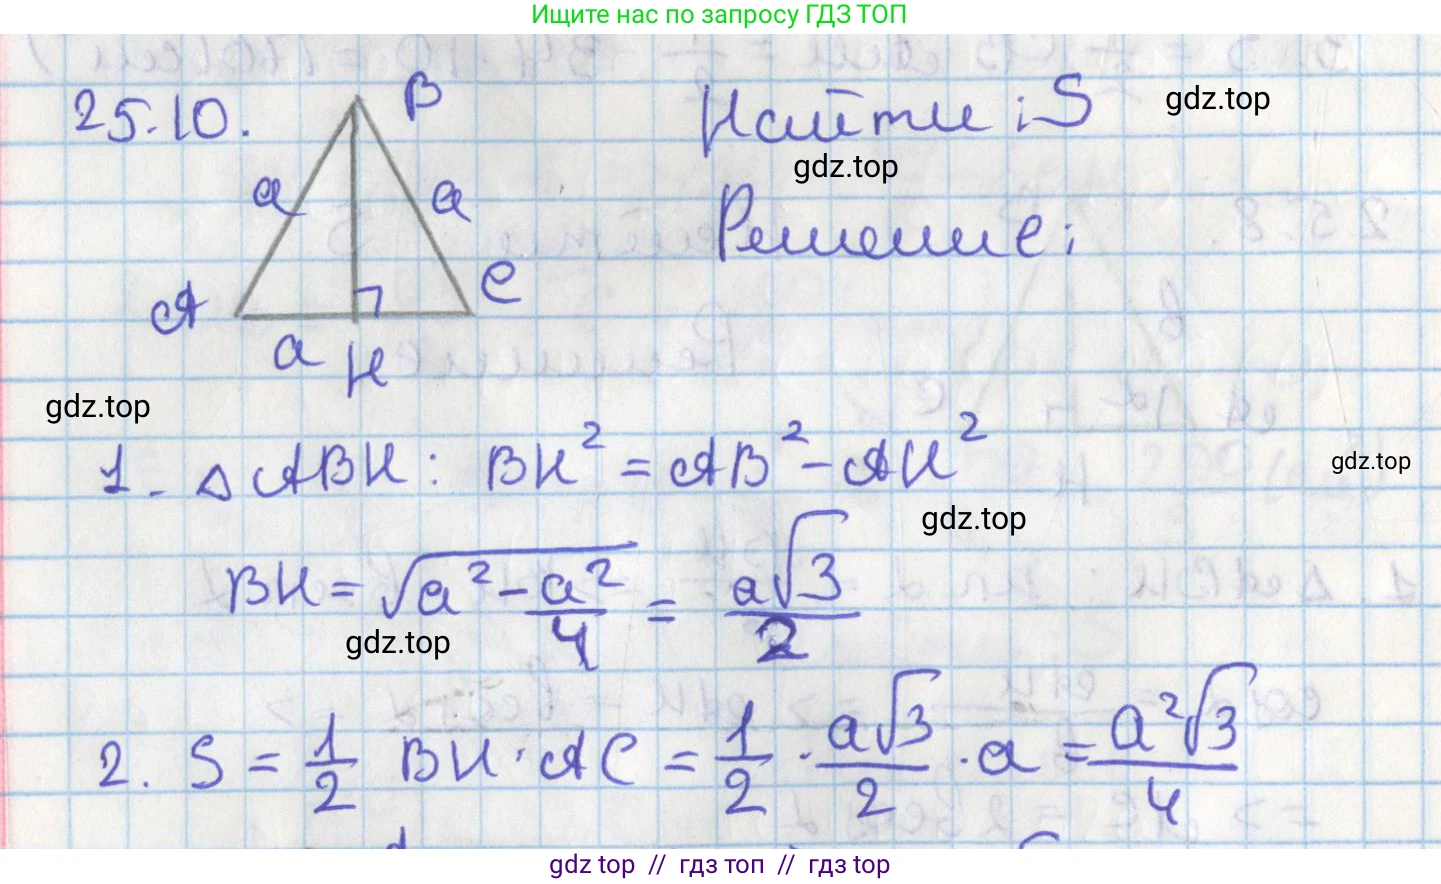 Ищите нас по запросу ГДЗ ТОП
25.10.
B
Найти: S
gdz.top
gdz.top
a
a
Решение:
A
C
a
H
gdz.top
1. △ ABH: BH² = AB² - AH²
gdz.top
gdz.top
BH = √(a² - a²/4) = a√3/2
gdz.top
2. S = 1/2 BH · AC = 1/2 · a√3/2 · a = a²√3/4
gdz top // гдз топ // gdz top